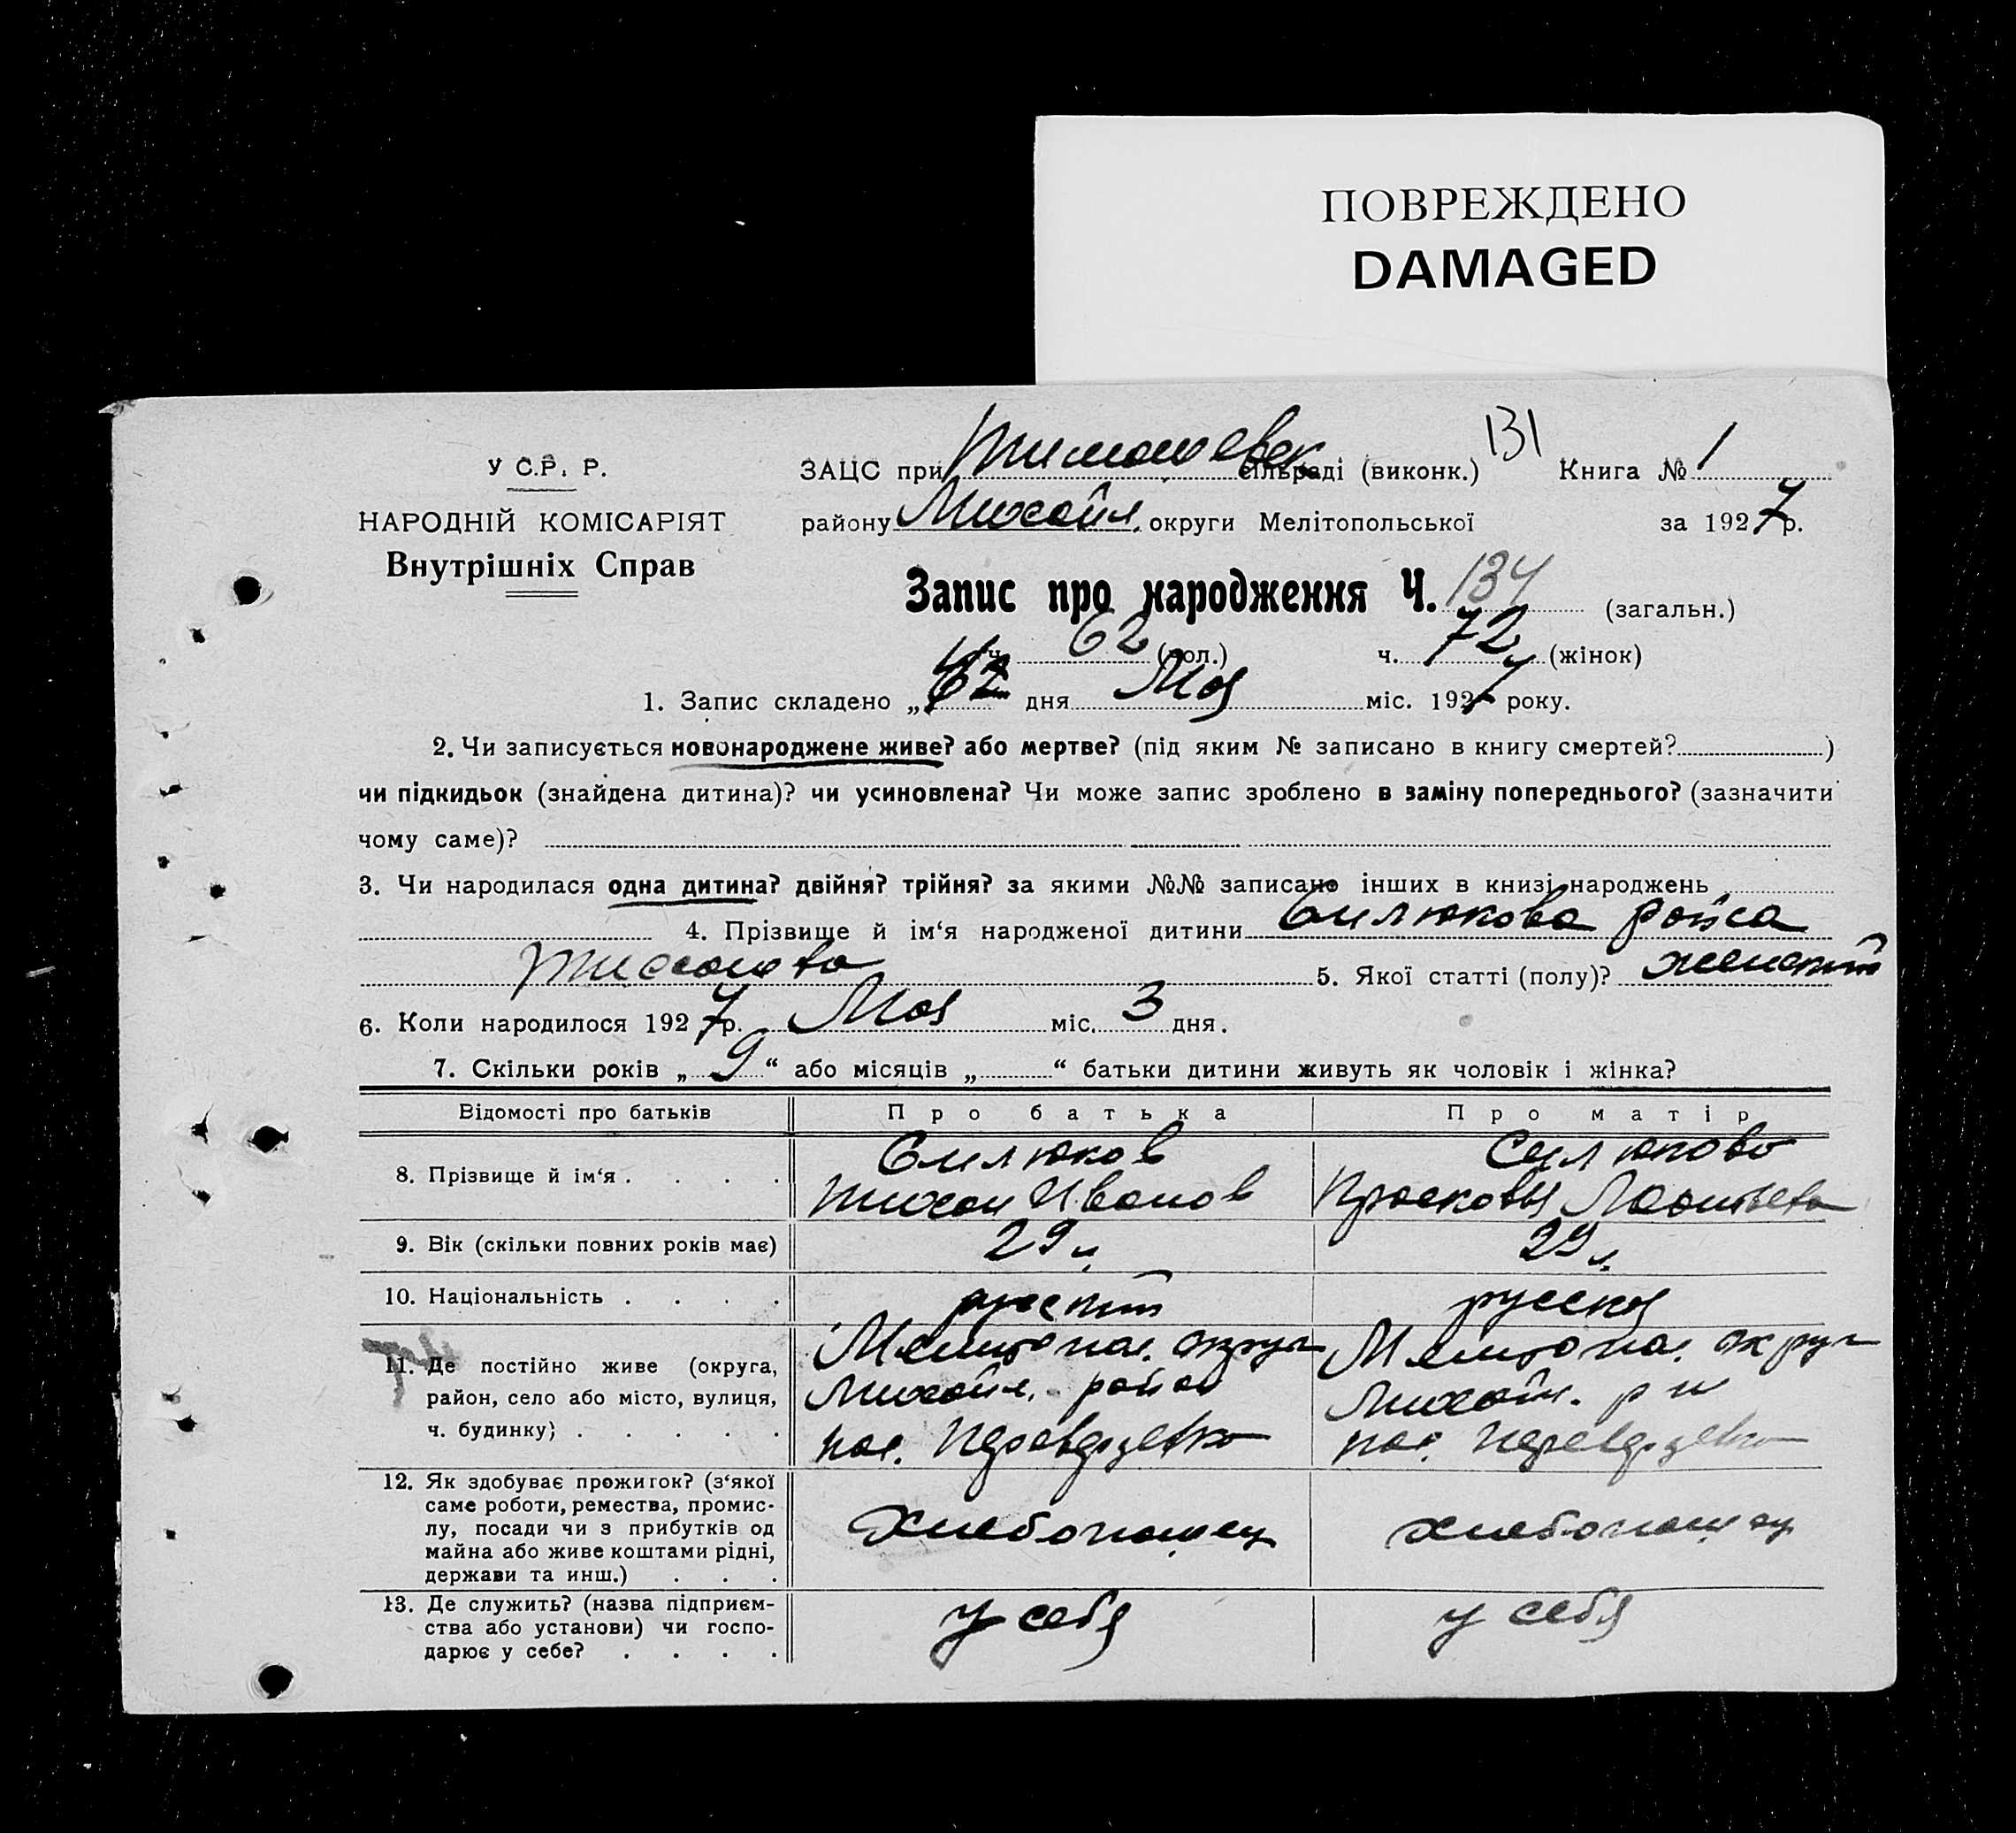 ПОВРЕЖДЕНО
DAMAGED
У С.Р. Р.
НАРОДНІЙ КОМІСАРІЯТ
Внутрішніх Справ
ЗАЦС при Тимошевск сільраді (виконк.) 131 Книга № 1
району Михайл. округи Мелітопольської за 1927 р.
Запис про народження Ч. 134 (загальн.)
ч. 62 (чол.) ч. 72 (жінок)
1. Запис складено „ дня Мая міс. 1927 року.
2. Чи записується новонароджене живе? або мертве? (під яким № записано в книгу смертей? )
чи підкидьок (знайдена дитина)? чи усиновлена? Чи може запис зроблено в заміну попереднього? (зазначити
чому саме)?
3. Чи народилася одна дитина? двійня? трійня? за якими №№ записано інших в книзі народжень
4. Прізвище й ім‘я народженої дитини Силюкова Раиса
Тихоновна 5. Якої статті (полу)? женский
6. Коли народилося 1927 р. Мая міс. 3 дня.
7. Скільки років „ 9 “ або місяців „ “ батьки дитини живуть як чоловік і жінка?
Відомості про батьків Про батька Про матір
8. Прізвище й ім‘я . . . . Силюков Тихон Иванов Силюкова Прасковья Леонтьевна
9. Вік (скільки повних років має) 29 л. 29 л.
10. Національність . . . . русский русская
11. Де постійно живе (округа, Мелитопол. округ Мелитопол. округ
район, село або місто, вулиця, Михайл. район Михайл. р н
ч. будинку) . . . . . пос. пос.
12. Як здобуває прожиток? (з‘якої
саме роботи, ремества, промис-
лу, посади чи з прибутків од Хлебопашец хлебопашец
майна або живе коштами рідні,
держави та инш.) . . .
13. Де служить? (назва підприєм- у себя у себя
ства або установи) чи госпо-
дарює у себе? . . . .